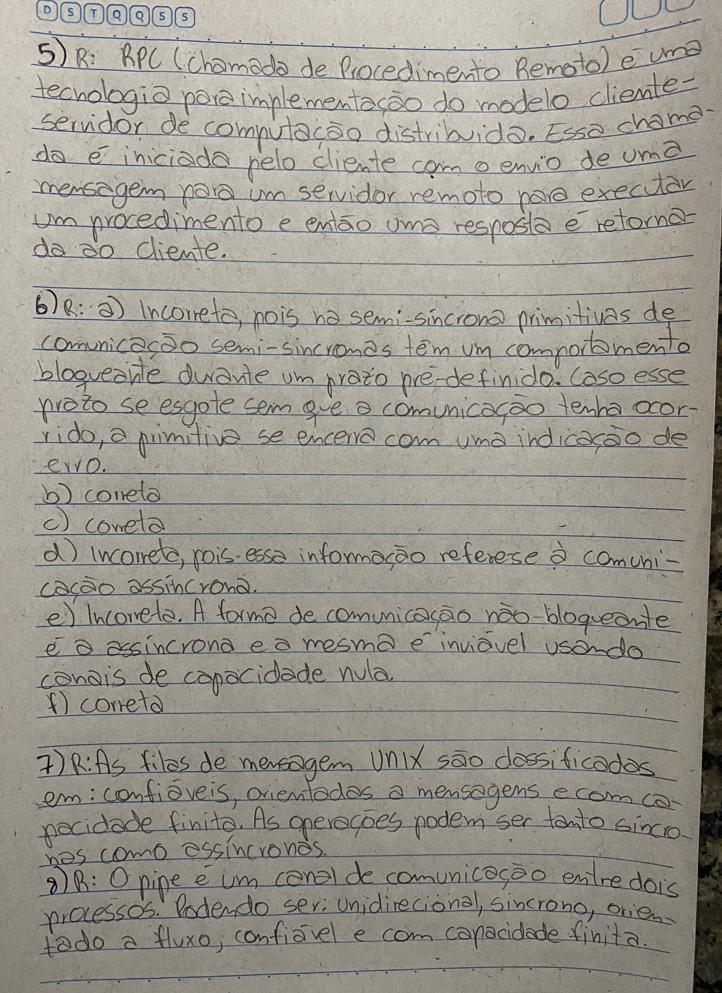 D S T Q Q S S
5) R: RPC (Chamada de Procedimento Remoto) é uma
tecnologia para implementação do modelo cliente-
servidor de computação distribuída. Essa chama-
da é iniciada pelo cliente com o envio de uma
mensagem para um servidor remoto para executar
um procedimento e então uma resposta é retorna-
da ao cliente.
6) R: a) Incorreta, pois na semi-síncrona primitivas de
comunicação semi-síncronas têm um comportamento
bloqueante durante um prazo pré-definido. Caso esse
prazo se esgote sem que a comunicação tenha ocor-
rido, a primitiva se encerra com uma indicação de
erro.
b) correta
c) correta
d) Incorreta, pois essa informação refere-se à comuni-
cação assíncrona.
e) Incorreta. A forma de comunicação não-bloqueante
é a assíncrona e a mesma é inviável usando
canais de capacidade nula.
f) correta
7) R: As filas de mensagem UNIX são classificadas
em: confiáveis, orientadas a mensagens e com ca-
pacidade finita. As operações podem ser tanto síncro-
nas como assíncronas.
8) R: O pipe é um canal de comunicação entre dois
processos. Podendo ser: unidirecional, síncrono, orien-
tado a fluxo, confiável e com capacidade finita.